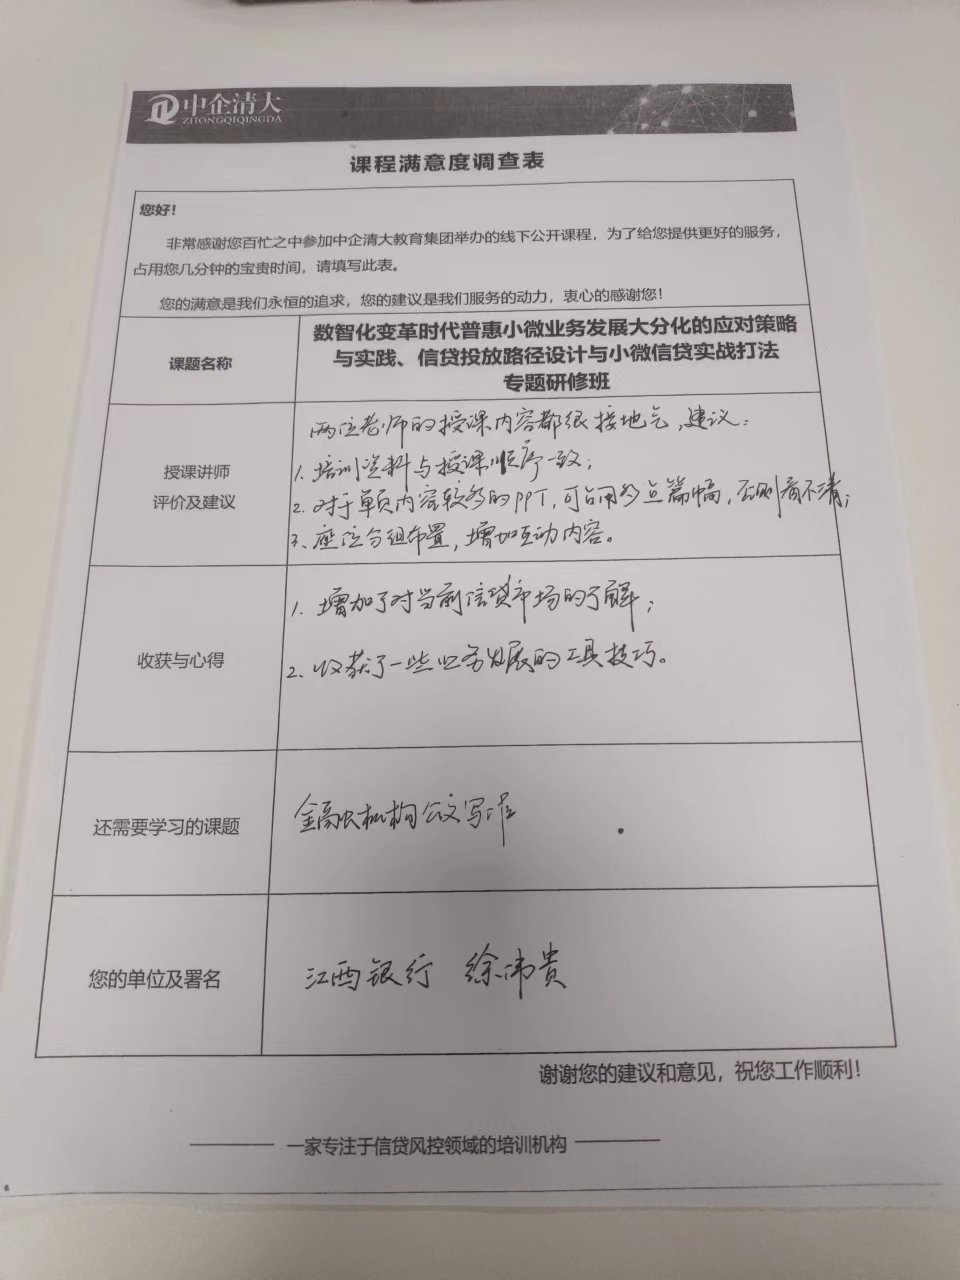 中企清大
ZHONGQIQINGDA
课程满意度调查表
您好!
非常感谢您百忙之中参加中企清大教育集团举办的线下公开课程，为了给您提供更好的服务，
占用您几分钟的宝贵时间，请填写此表。
您的满意是我们永恒的追求，您的建议是我们服务的动力，衷心的感谢您!
课题名称
数智化变革时代普惠小微业务发展大分化的应对策略
与实践、信贷投放路径设计与小微信贷实战打法
专题研修班
授课讲师
评价及建议
两位老师的授课内容都很接地气，建议：
1. 培训资料与授课顺序一致；
2. 对于单页内容较多的PPT，可占用多点篇幅，否则看不清；
3. 座位分组布置，增加互动内容。
收获与心得
1. 增加了对当前信贷市场的了解；
2. 收获了一些业务发展的工具技巧。
还需要学习的课题
金融机构公文写作
您的单位及署名
江西银行 徐沛贵
谢谢您的建议和意见，祝您工作顺利!
一家专注于信贷风控领域的培训机构